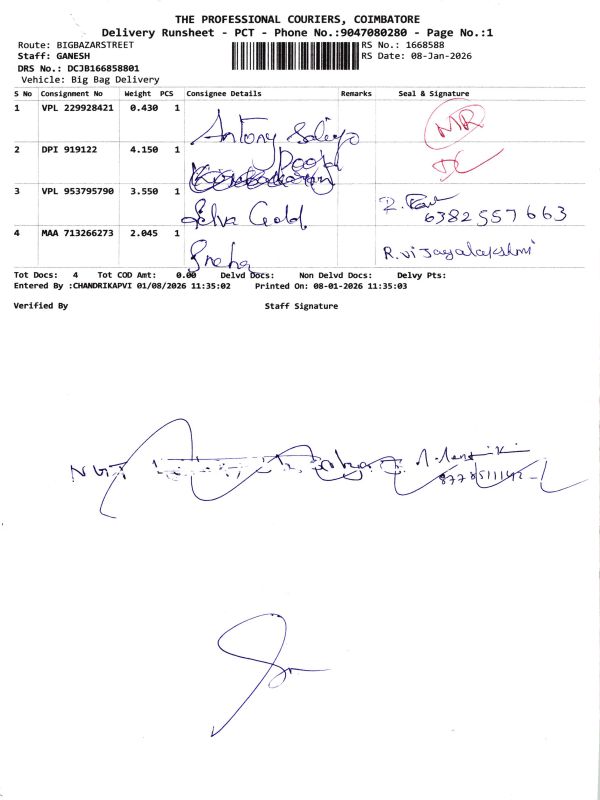 THE PROFESSIONAL COURIERS, COIMBATORE
Delivery Runsheet - PCT - Phone No.:9047080280 - Page No.:1
Route: BIGBAZARSTREET
RS No.: 1668588
Staff: GANESH
RS Date: 08-Jan-2026
DRS No.: DCJB166858801
Vehicle: Big Bag Delivery
S No Consignment No Weight PCS Consignee Details Remarks Seal & Signature
1 VPL 229928421 0.430 1 Antony
2 DPI 919122 4.150 1 Pooja
3 VPL 953795790 3.550 1 Selva Gold 6382557663
4 MAA 713266273 2.045 1 Sneha R.vijayalakshmi
Tot Docs: 4 Tot COD Amt: 0.00 Delvd Docs: Non Delvd Docs: Delvy Pts:
Entered By :CHANDRIKAPVI 01/08/2026 11:35:02 Printed On: 08-01-2026 11:35:03
Verified By Staff Signature